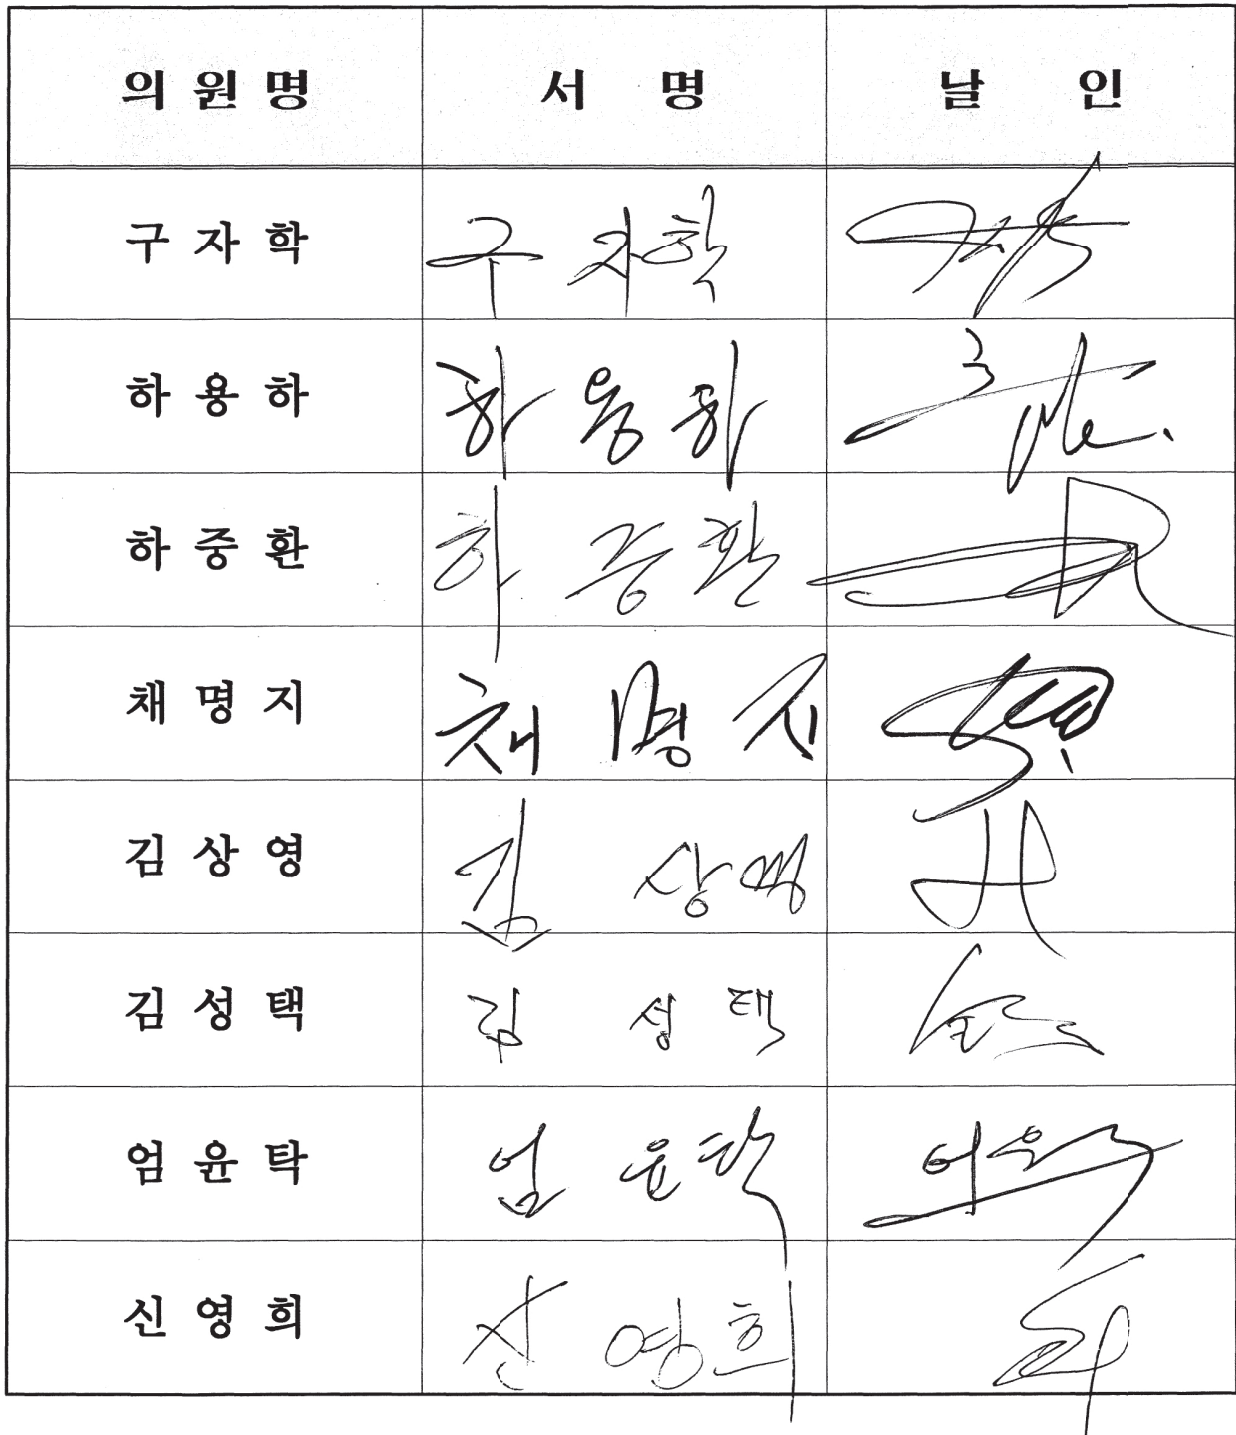 의원명 서 명 날 인
구자학 구자학
하용하 하용하
하중환 하중환
채명지 채명지
김상영 김상영
김성택 김성택
엄윤탁 엄윤탁
신영희 신영희